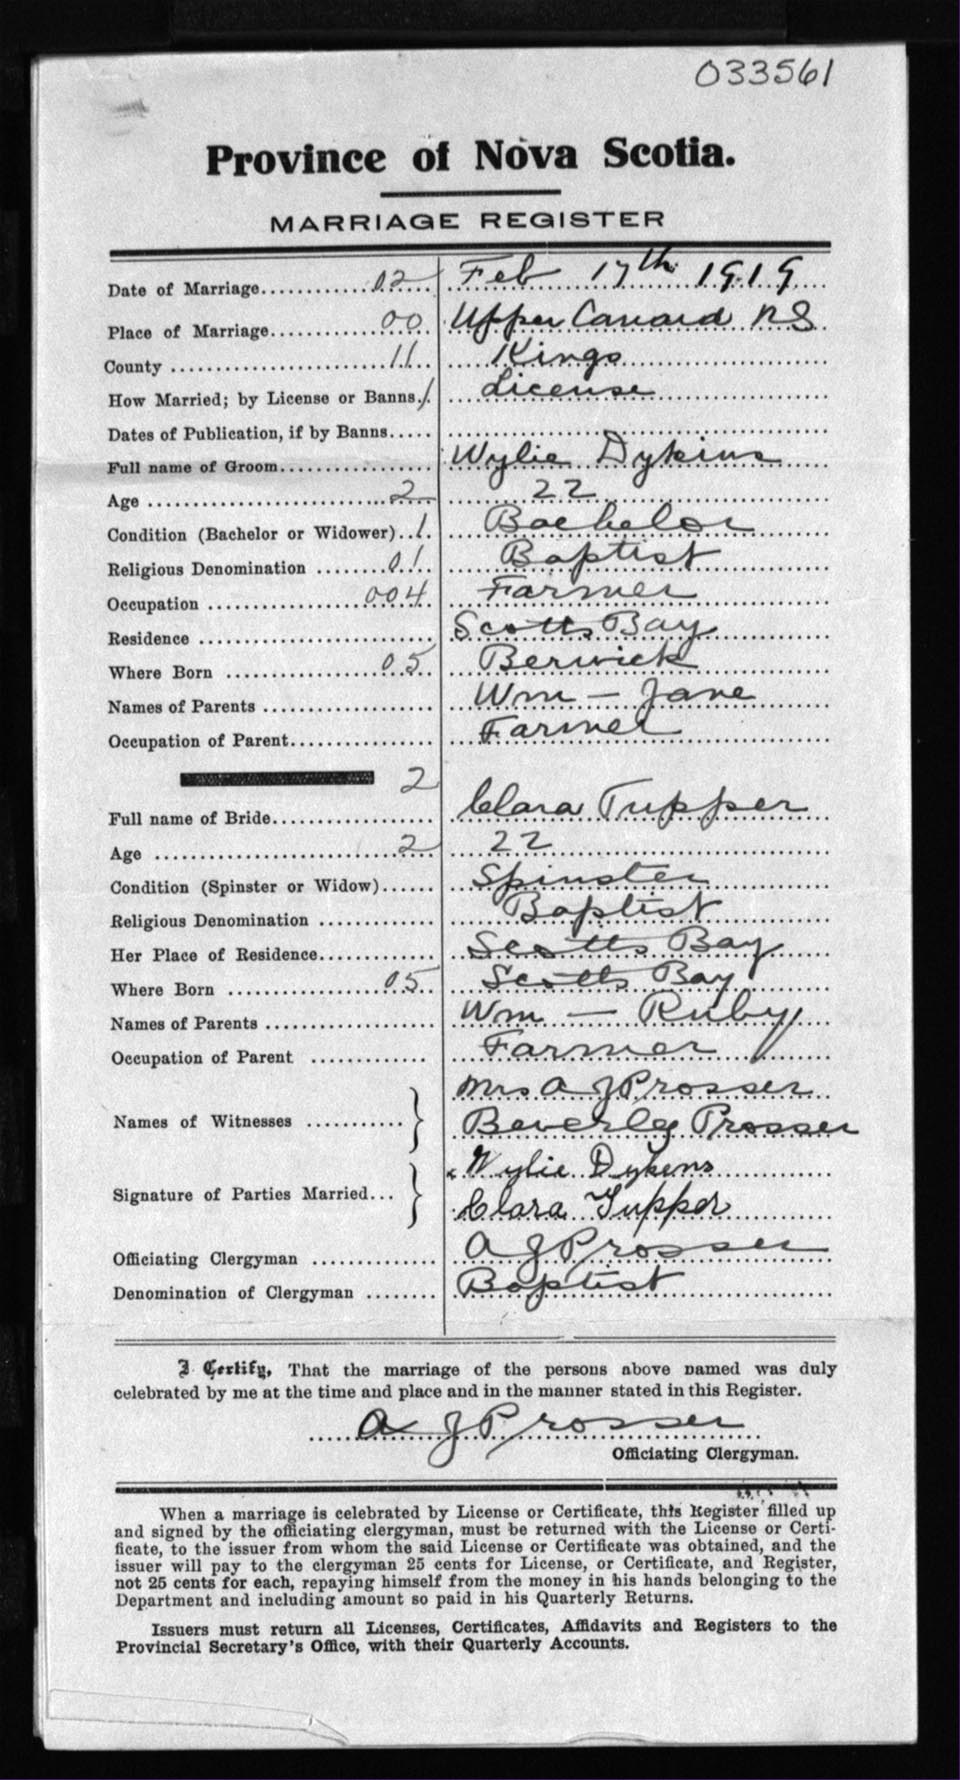 033561
Province of Nova Scotia.
MARRIAGE REGISTER
Date of Marriage............02.... Feb 17th 1919
Place of Marriage............00.. Upper Canard NS
County ........................11... Kings
How Married; by License or Banns./. License
Dates of Publication, if by Banns.....
Full name of Groom................ Wylie Dykins
Age ...........................2.... 22
Condition (Bachelor or Widower)..1. Bachelor
Religious Denomination ........01. Baptist
Occupation ..................004. Farmer
Residence ......................... Scotts Bay
Where Born ...................05.. Berwick
Names of Parents .................. Wm - Jane
Occupation of Parent................ Farmer
2
Full name of Bride.................. Clara Tupper
Age ...........................2.... 22
Condition (Spinster or Widow)...... Spinster
Religious Denomination ............. Baptist
Her Place of Residence............. Scotts Bay
Where Born ...................05.. Scotts Bay
Names of Parents .................. Wm - Ruby
Occupation of Parent ............. Farmer
Names of Witnesses ........... } Mrs A J Prosser
Beverly Prosser
Signature of Parties Married... } Wylie Dykens
Clara Tupper
Officiating Clergyman ............. A J Prosser
Denomination of Clergyman ........ Baptist
I Certify, That the marriage of the persons above named was duly
celebrated by me at the time and place and in the manner stated in this Register.
A J Prosser
Officiating Clergyman.
When a marriage is celebrated by License or Certificate, this Register filled up
and signed by the officiating clergyman, must be returned with the License or Certi-
ficate, to the issuer from whom the said License or Certificate was obtained, and the
issuer will pay to the clergyman 25 cents for License, or Certificate, and Register,
not 25 cents for each, repaying himself from the money in his hands belonging to the
Department and including amount so paid in his Quarterly Returns.
Issuers must return all Licenses, Certificates, Affidavits and Registers to the
Provincial Secretary's Office, with their Quarterly Accounts.